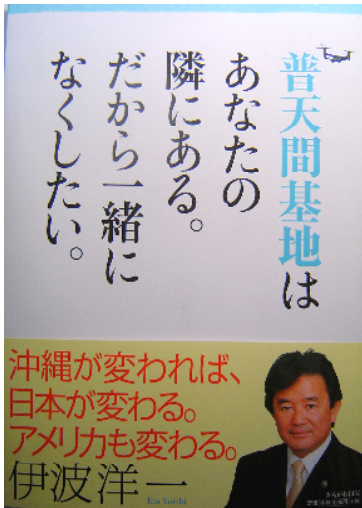 普天間基地は
あなたの
隣にある。
だから一緒に
なくしたい。
沖縄が変われば、
日本が変わる。
アメリカも変わる。
伊波洋一
Iha Yoichi